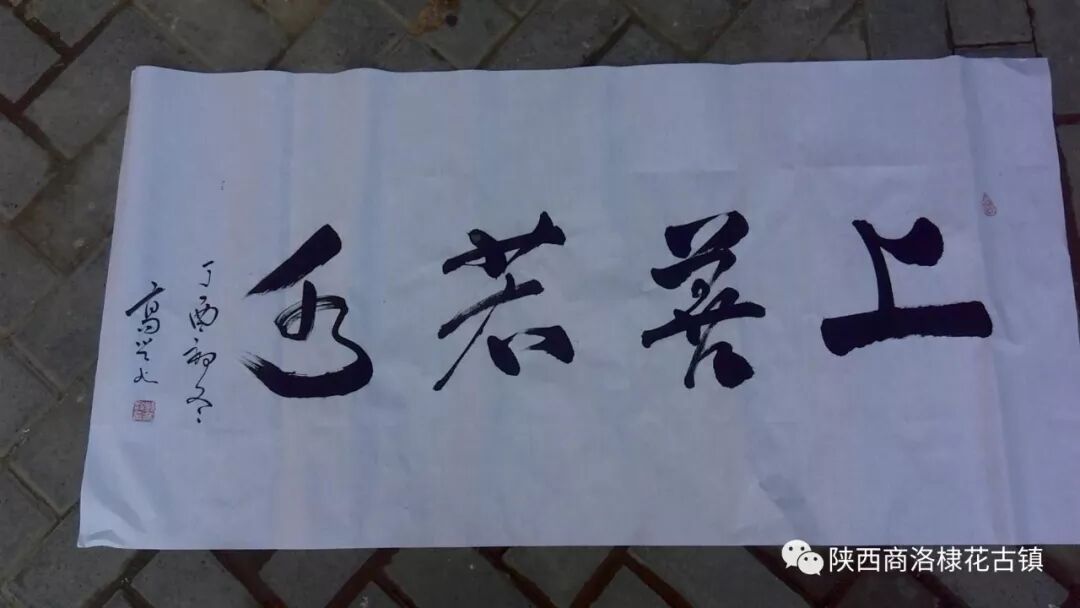 上善若水
丁酉初冬
陕西商洛棣花古镇